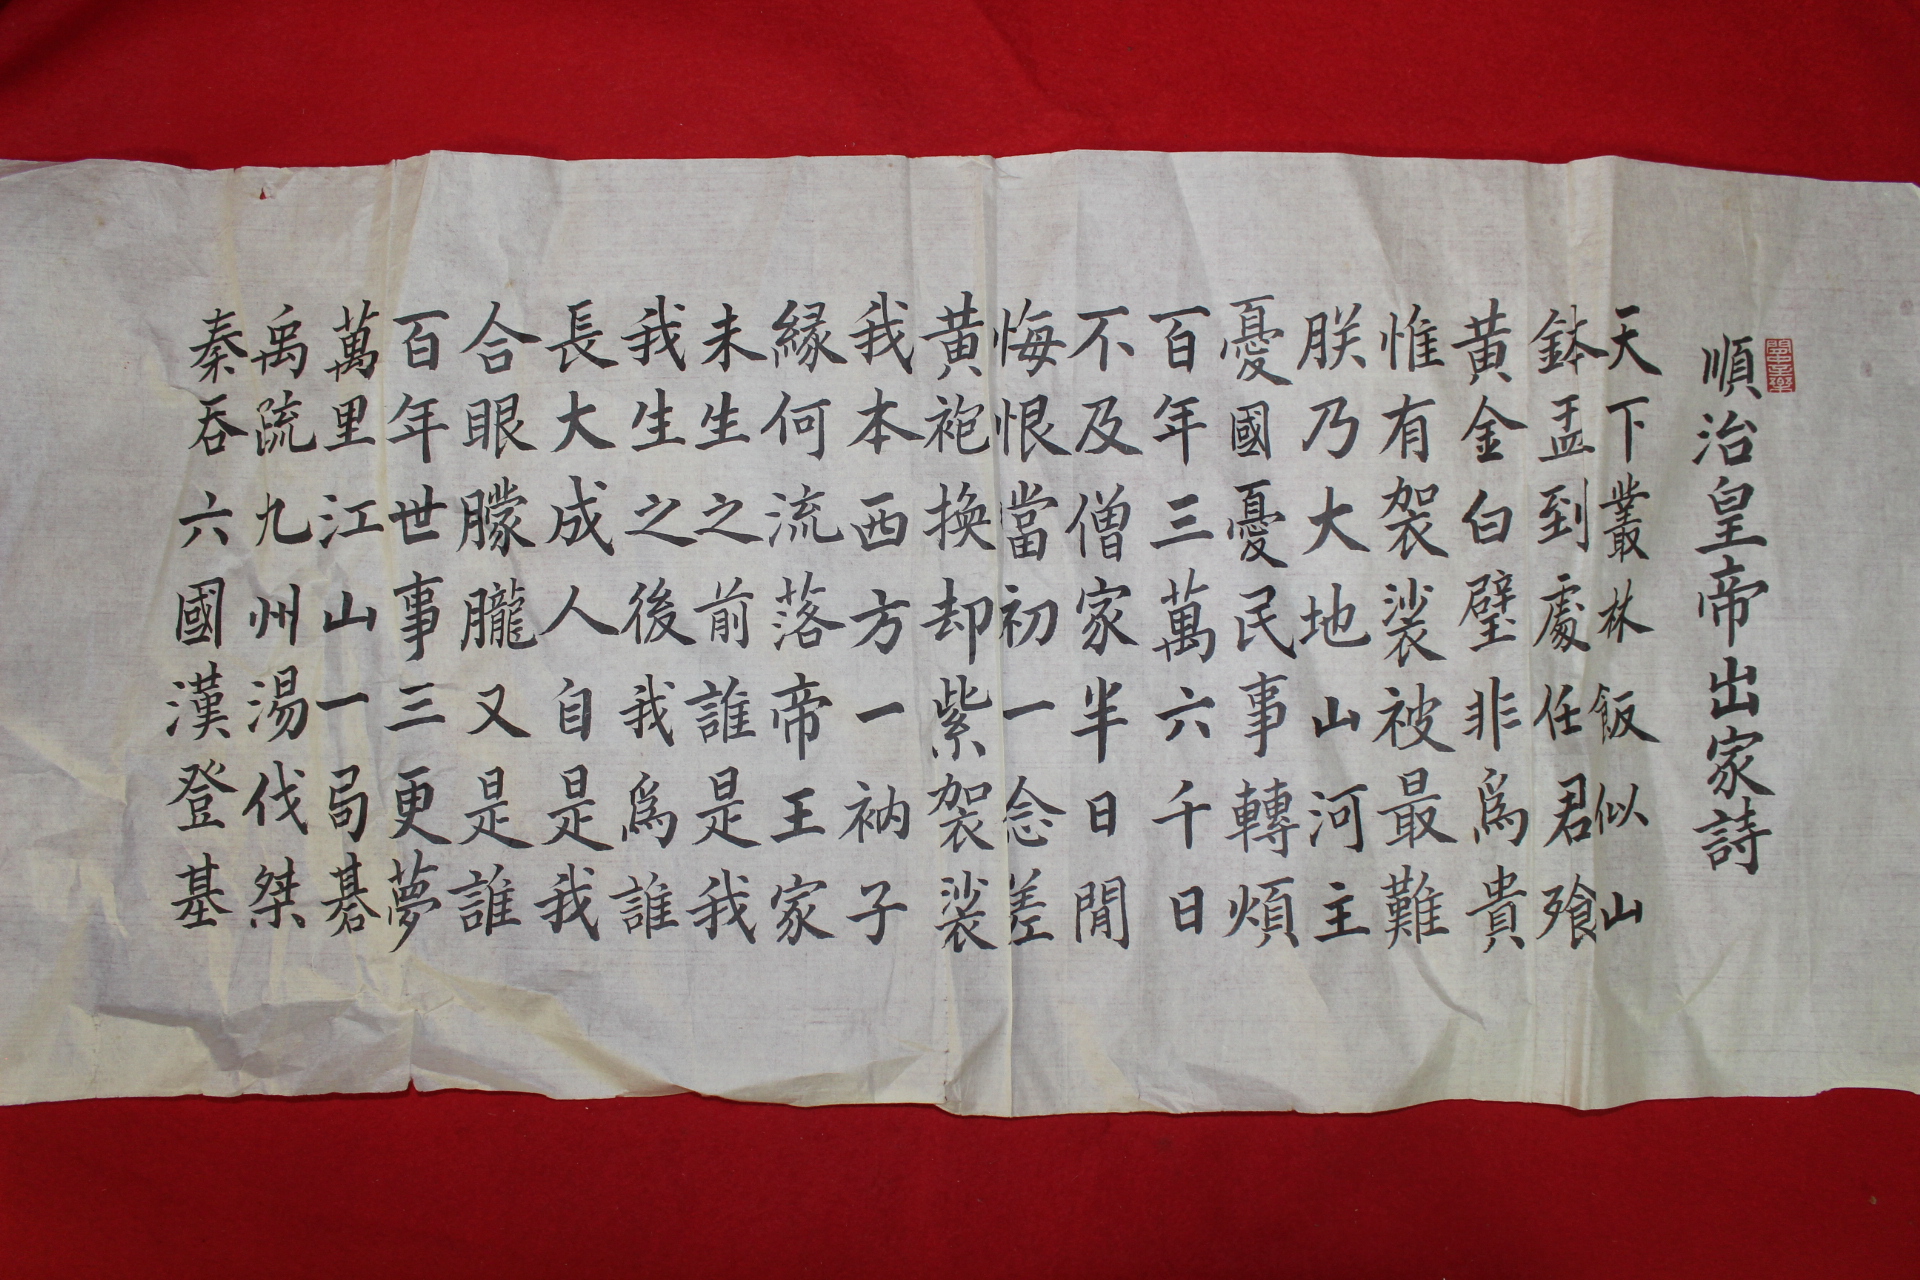 順治皇帝出家詩
天下叢林飯似山
鉢盂到處任君飱
黃金白璧非爲貴
惟有袈裟被最難
朕乃大地山河主
憂國憂民事轉煩
百年三萬六千日
不及僧家半日閒
悔恨當初一念差
黃袍換却紫袈裟
我本西方一衲子
緣何流落帝王家
未生之前誰是我
我生之後我爲誰
長大成人自是我
合眼朦朧又是誰
百年世事三更夢
萬里江山一局碁
禹疏九州湯伐桀
秦吞六國漢登基